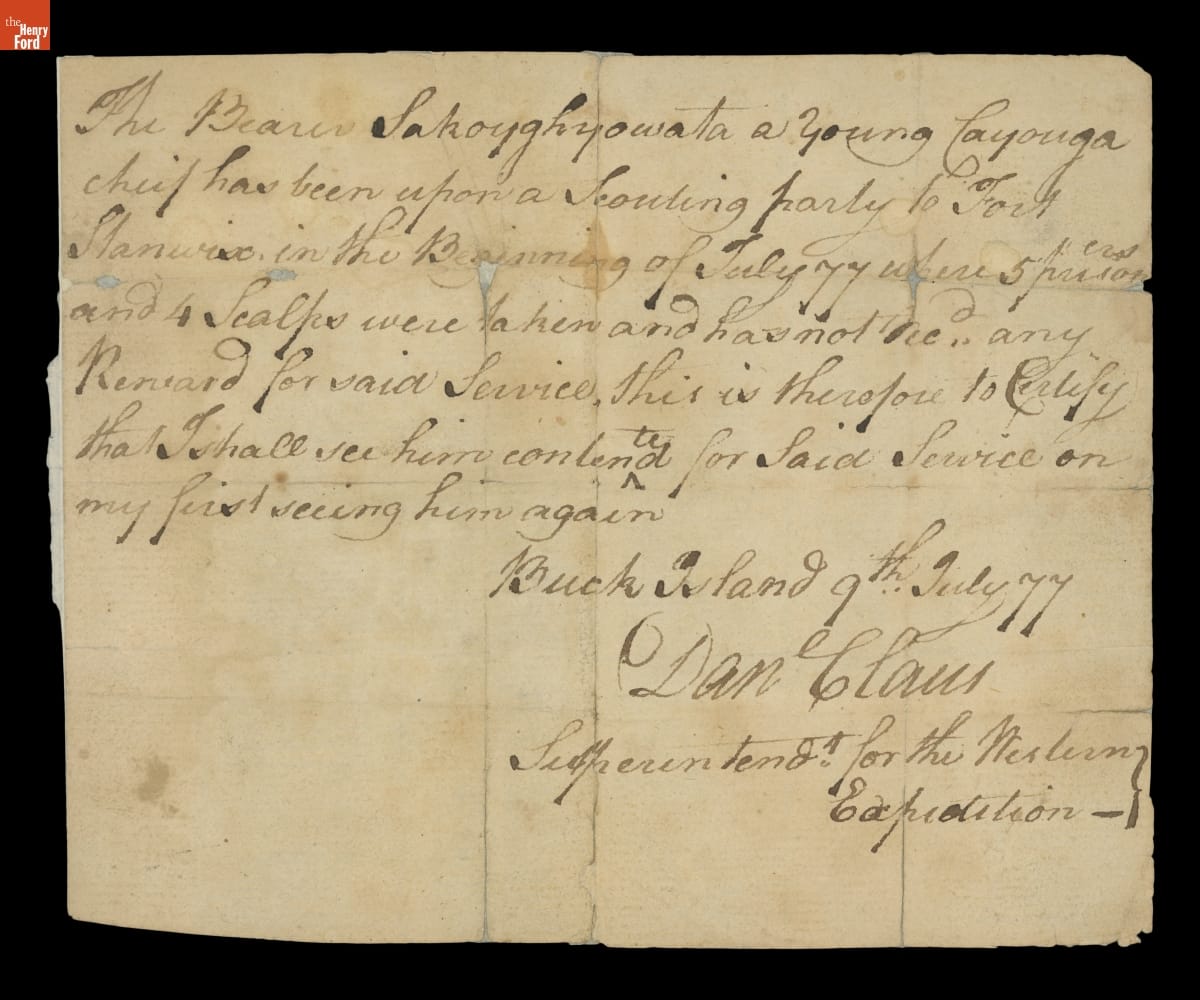 the
Henry
Ford
The Bearer Sakoyghyowata a Young Cayouga
cheif has been upon a Scouting party to Fort
Stanwix in the Beginning of July 77 where 5 prisoners
and 4 Scalps were taken and has not Recd.. any
Reward for said Service, this is therefore to Certify
that I shall see him contented for Said Service on
my first seeing him again
Buck Island 9th. July 77
Danl Claus
Superintendt. for the Western
Expedition —